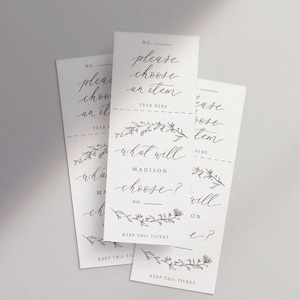 NO.
please
choose
an item
TEAR HERE
what will
MADISON
choose?
NO.
KEEP THIS TICKET
NO.
please
choose
an item
TEAR HERE
what
MA
choose
KEEP THIS
item
HERE
will
SON
choose?
KEEP THIS TICKET